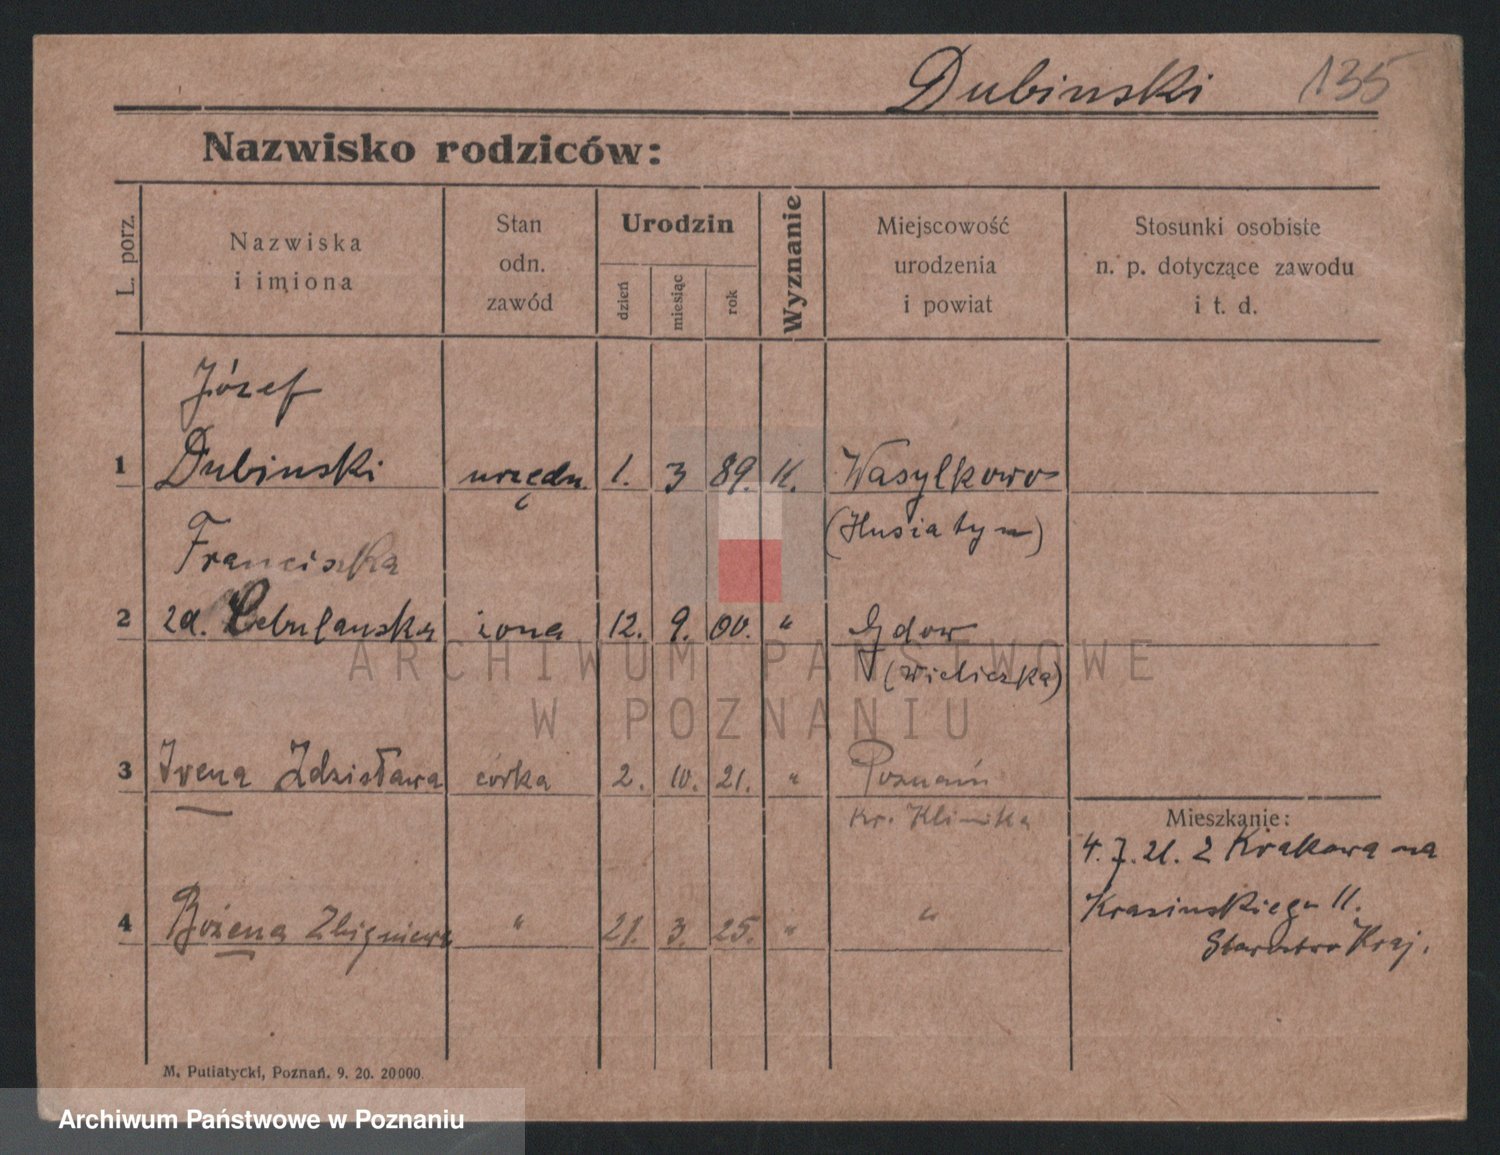 Dubinski 135
Nazwisko rodziców:
L. porz.
Nazwiska
i imiona
Stan
odn.
zawód
Urodzin
dzień
miesiąc
rok
Wyznanie
Miejscowość
urodzenia
i powiat
Stosunki osobiste
n. p. dotyczące zawodu
i t. d.
Józef
1 Dubinski urzędn. 1. 3 89. K. Wasylkowo
(Husiatyn)
Franciszka
2 zd. Cebulanska żona 12. 9. 00. " Gdow
(Wieliczka)
3 Irena Zdzisława córka 2. 10. 21. " Poznań
kr. Klinika
4 Bożena Zbigniewa " 21. 3. 25. " "
Mieszkanie:
4.7.21. z Krakowa na
Krasinskiego 11.
Starostwo Kraj.
M. Putiatycki, Poznań. 9. 20. 20000.
ARCHIWUM PAŃSTWOWE
W POZNANIU
Archiwum Państwowe w Poznaniu